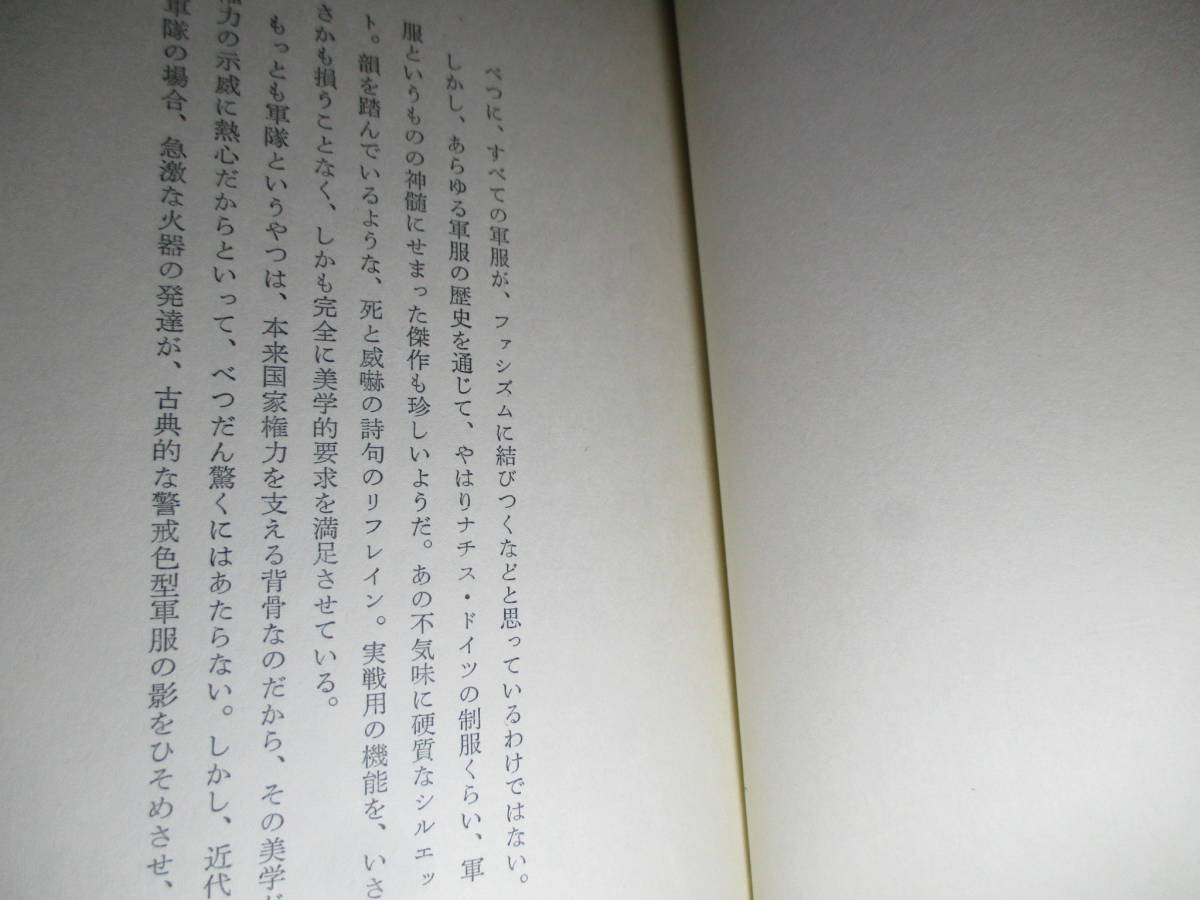 べつに、すべての軍服が、ファシズムに結びつくなどと思っているわけではない。
しかし、あらゆる軍服の歴史を通じて、やはりナチス・ドイツの制服くらい、軍
服というものの神髄にせまった傑作も珍しいようだ。あの不気味に硬質なシルエッ
ト。韻を踏んでいるような、死と威嚇の詩句のリフレイン。実戦用の機能を、いさ
さかも損うことなく、しかも完全に美学的要求を満足させている。
もっとも軍隊というやつは、本来国家権力を支える背骨なのだから、その美学が
権力の示威に熱心だからといって、べつだん驚くにはあたらない。しかし、近代
軍隊の場合、急激な火器の発達が、古典的な警戒色型軍服の影をひそめさせ、